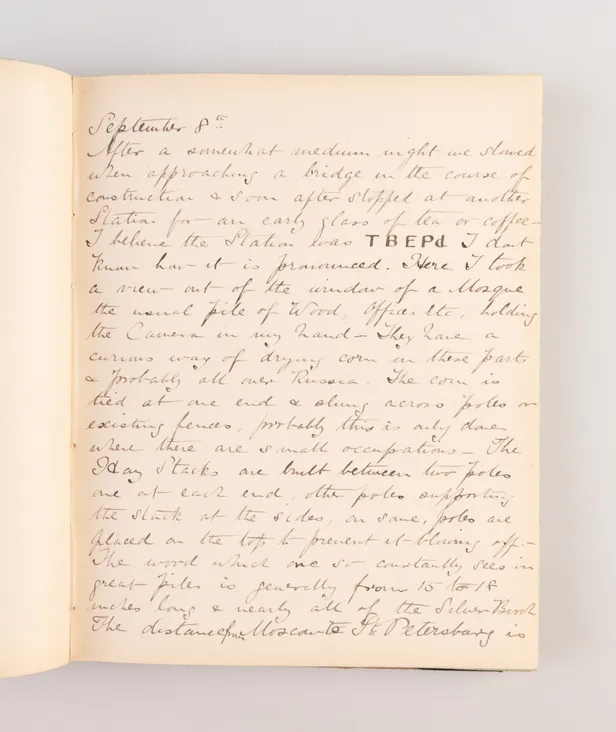 September 8th
After a somewhat medium night we slowed
when approaching a bridge in the course of
construction & soon after stopped at another
Station for an early glass of tea or coffee –
I believe the Station was TBEPd I dont
know how it is pronounced. Here I took
a view out of the window of a Mosque
the usual pile of Wood, Offices etc, holding
the Camera in my hand – They have a
curious way of drying corn in these parts
& probably all over Russia. The corn is
tied at one end & slung across poles or
existing fences, probably this is only done
where there are small occupations – The
Hay Stacks are built between two poles
one at each end, other poles supporting
the stack at the sides, on some, poles are
placed on the top to prevent it blowing off. –
The wood which one so constantly sees in
great piles is generally from 15 to 18
inches long & nearly all of the Silver Birch
The distance from Moscow to St Petersburg is